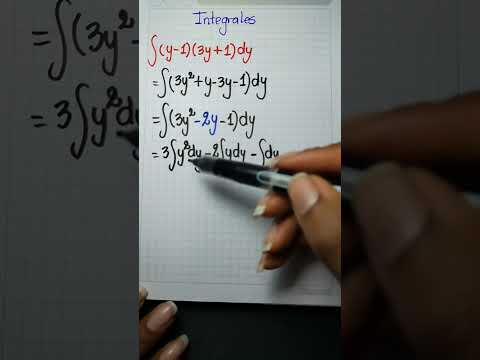 Integrales
∫(y-1)(3y+1)dy
=∫(3y²+y-3y-1)dy
=∫(3y²-2y-1)dy
=3∫y²dy-2∫ydy-∫dy